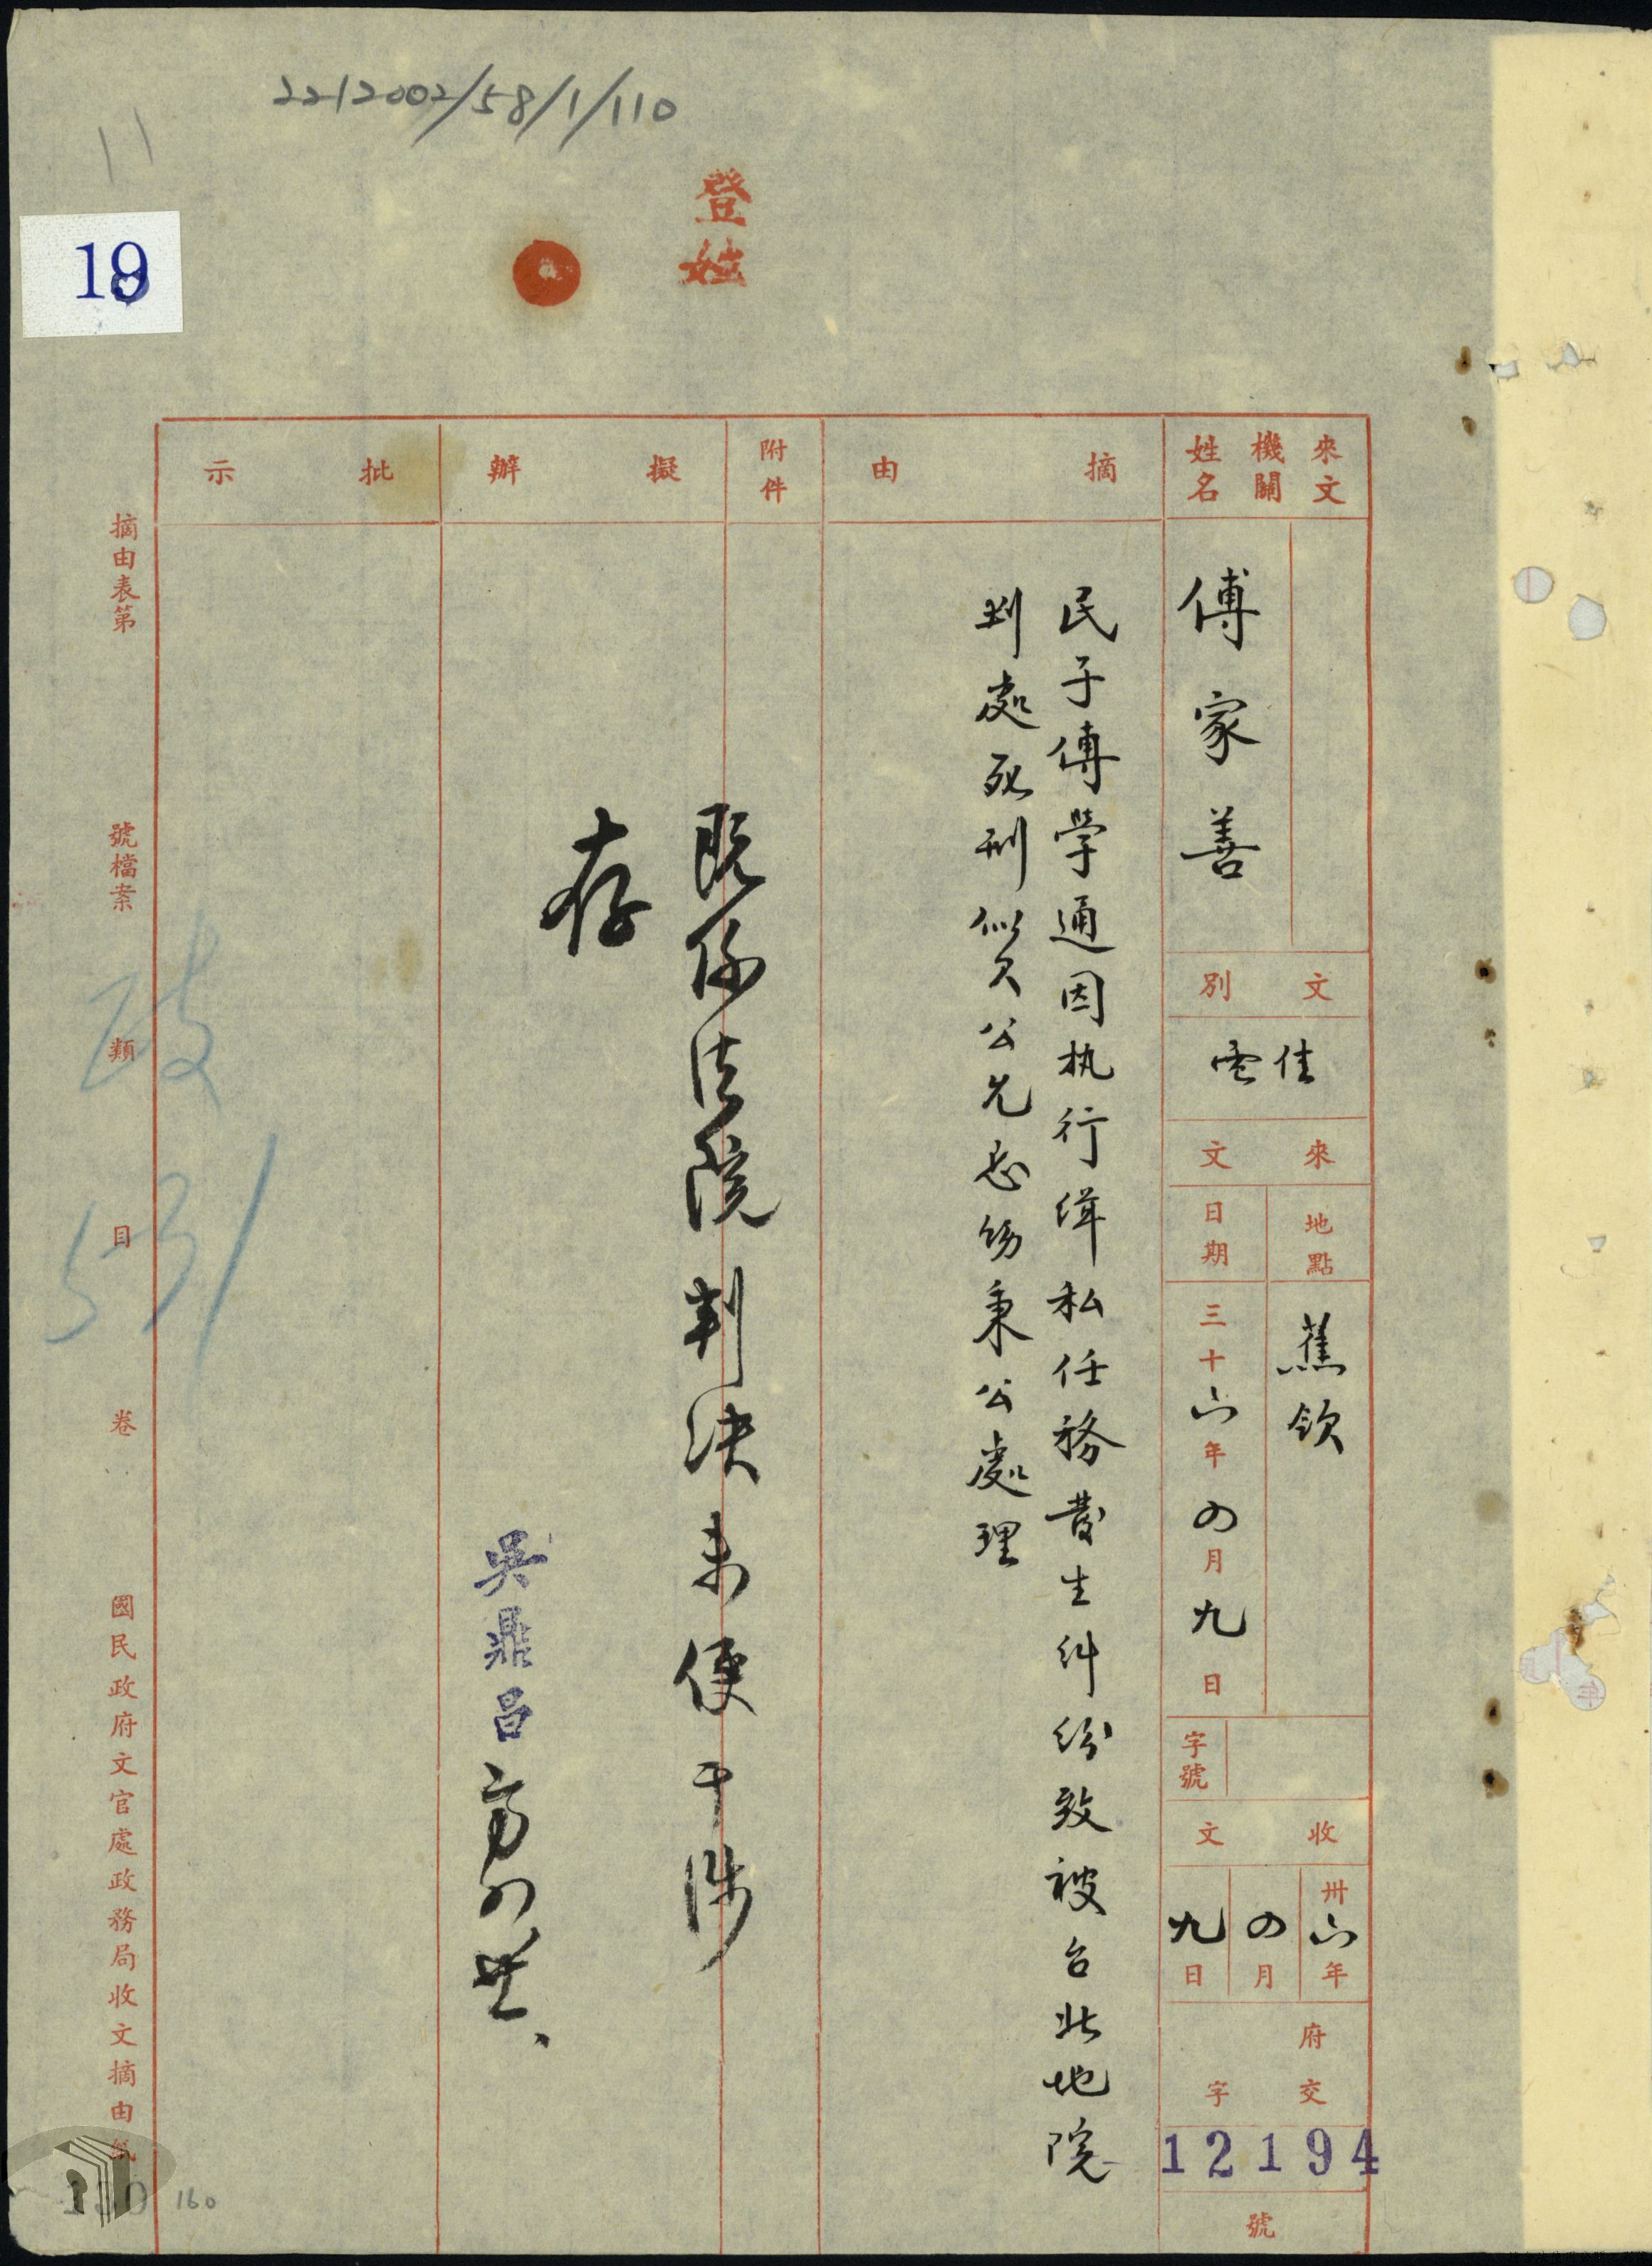 2212002/58/1/110
11
19
登
姓
來文
機關
姓名
傅家善
文別
佳電
來文
地點
蕉欽
日期
三十六年四月九日
字號
收文
卅六年
四月
九日
府交字
12194
號
摘由
民子傅學通因执行缉私任務發生纠纷致被台北地院
判處死刑似欠公允悉飭秉公處理
附件
擬辦
既係法院判決未便干涉
存
吳鼎昌
批示
摘由表第
號檔案
政
類
531
目
卷
國民政府文官處政務局收文摘由紙
160